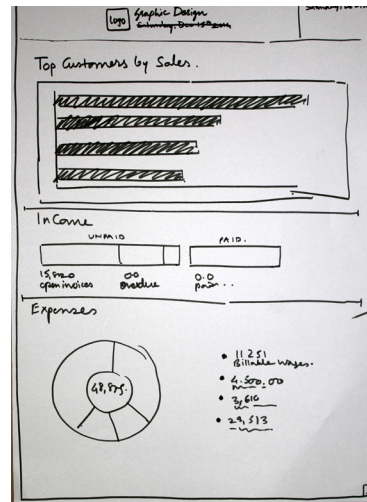 Logo
Graphic Design
Top Customers by Sales.
Income
UNPAID
PAID.
15,820
open invoices
00
overdue
0.0
paid...
Expenses
48,875.
11251
Billable Wages.
4.500.00
3,610
29,513